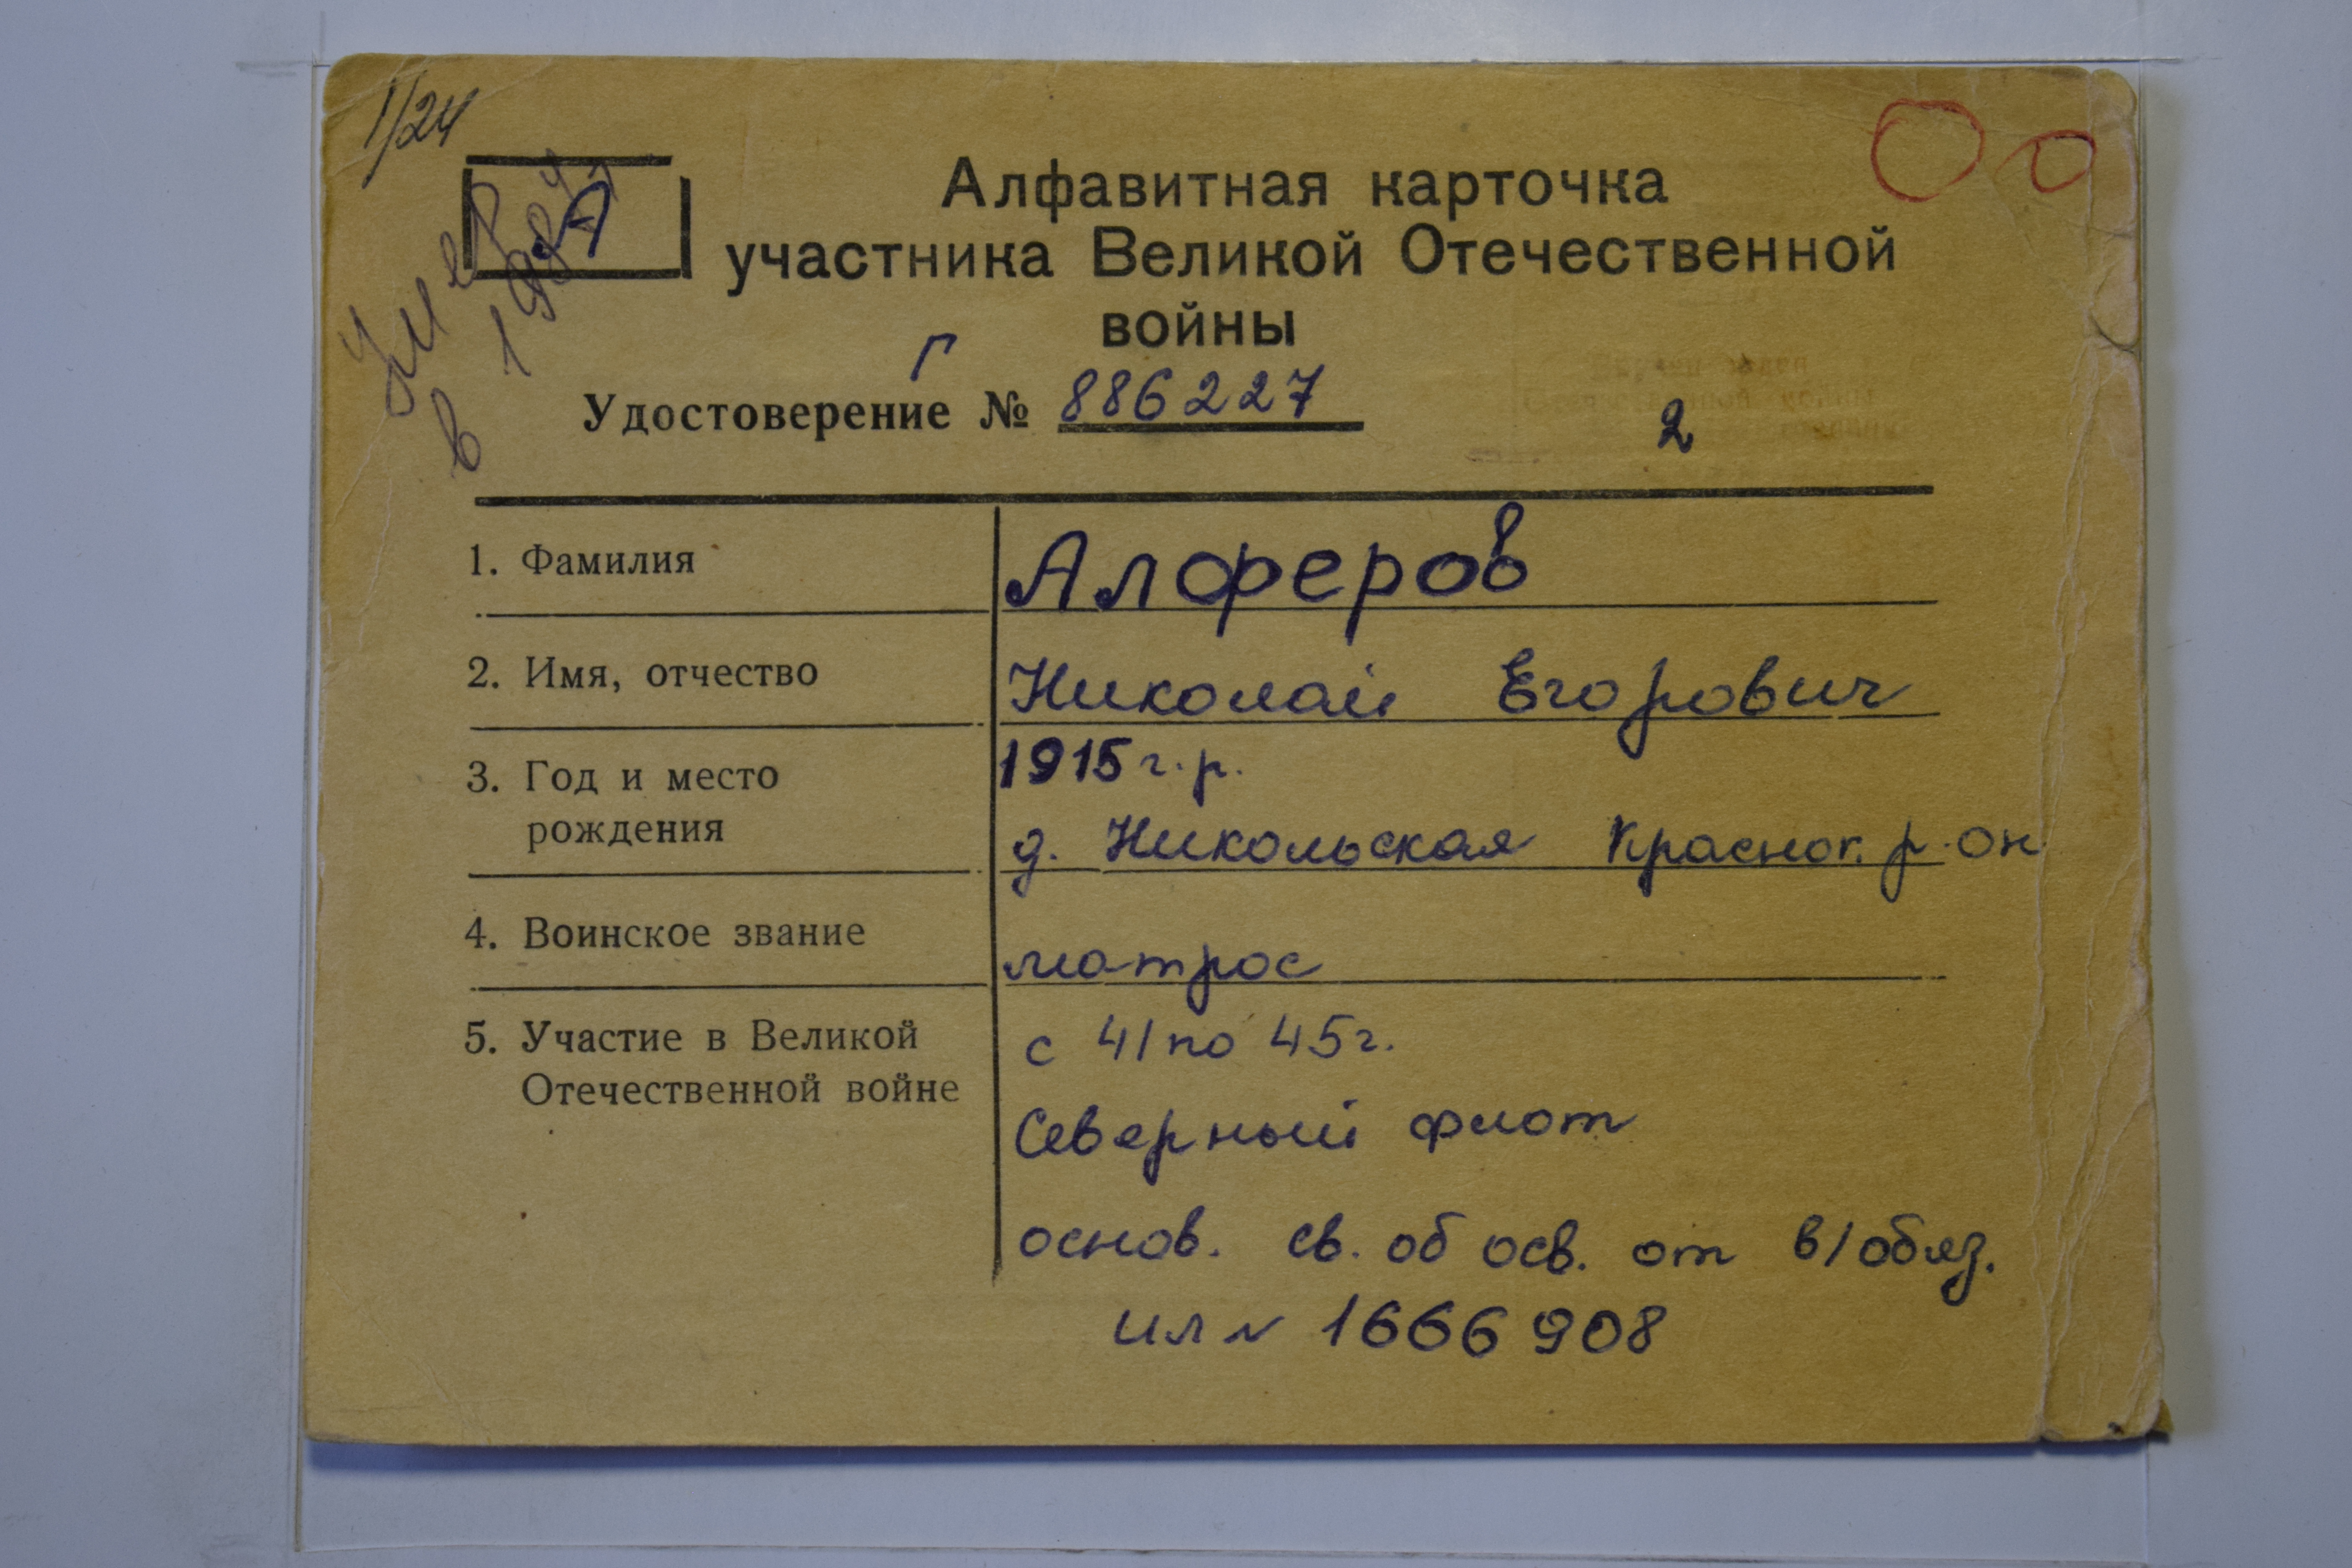 1/24
А
Умер
в 1984
Алфавитная карточка
участника Великой Отечественной
войны
Г
Удостоверение № 886227
2
1. Фамилия Алферов
2. Имя, отчество Николай Егорович
3. Год и место 1915 г.р.
рождения д. Никольская Краснок. р-он
4. Воинское звание матрос
5. Участие в Великой с 41 по 45 г.
Отечественной войне
Северный флот
основ. св. об осв. от в/обяз.
ил № 1666908